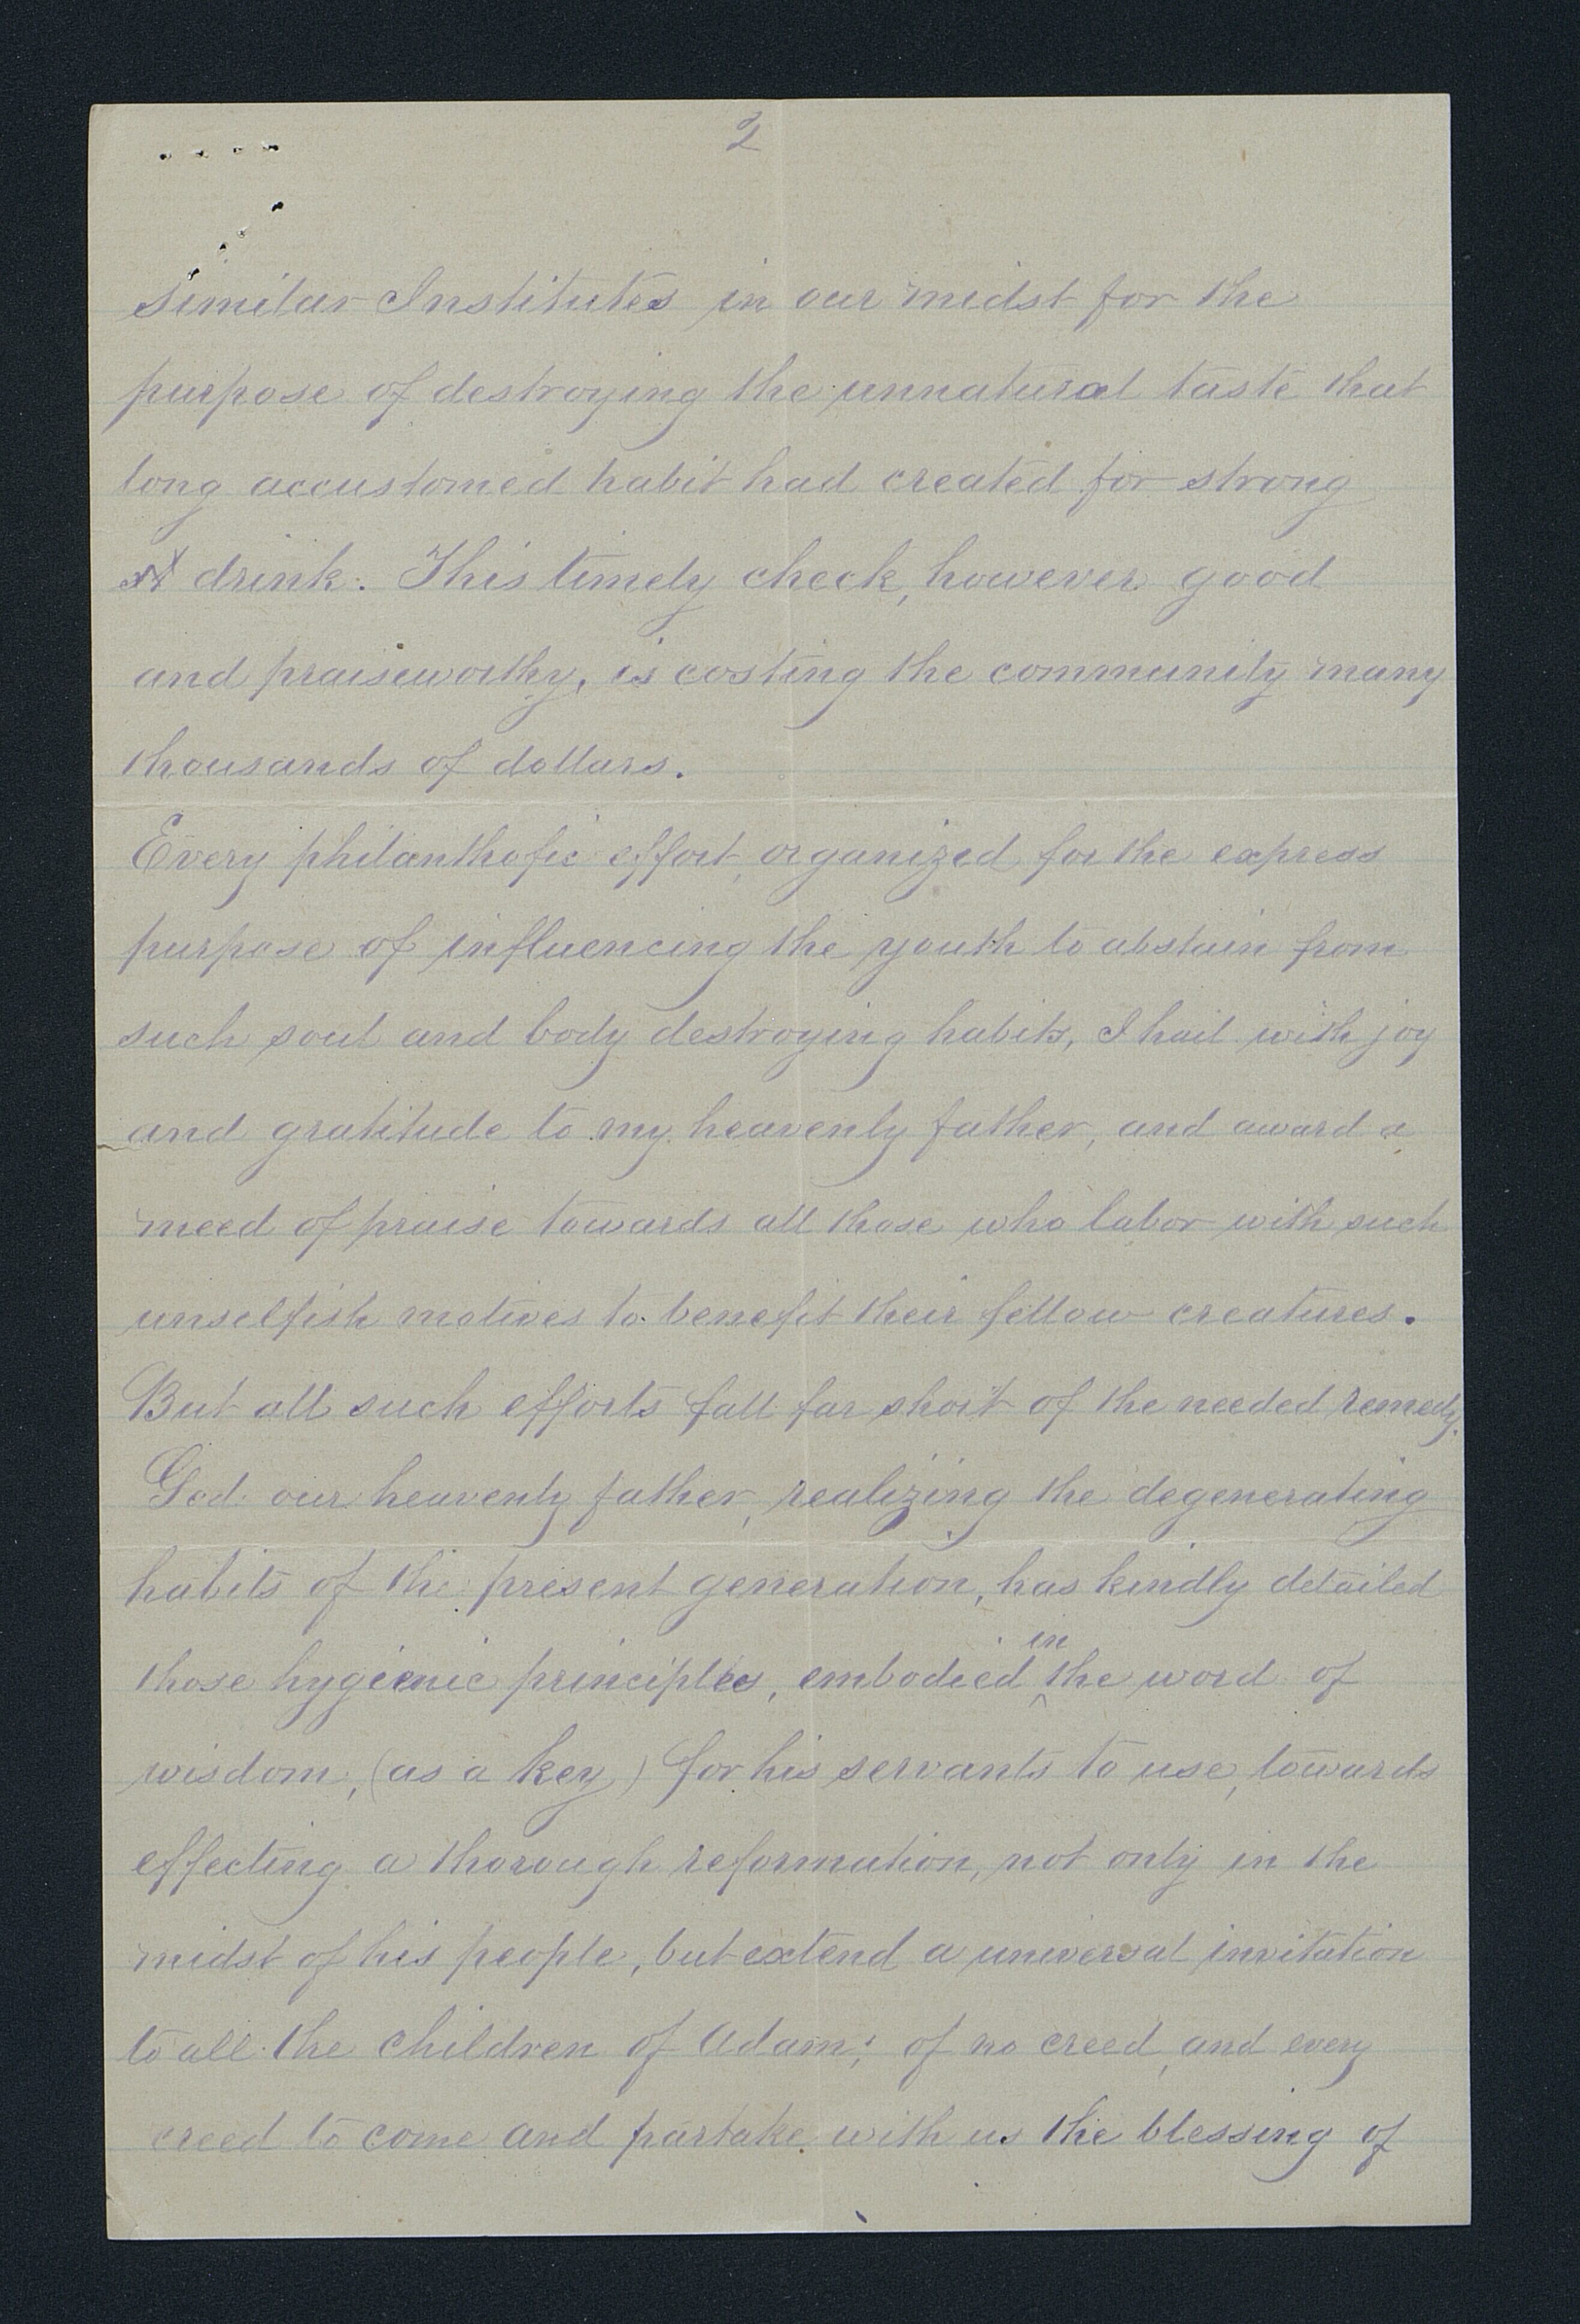 2
similar Institutes in our midst for the
purpose of destroying the unnatural taste that
long accustomed habit had created for strong
drink. This timely check, however good
and praiseworthy, is costing the community many
thousands of dollars.
Every philanthofic effort, organized for the express
purpose of influencing the youth to abstain from
such soul and body destroying habits, I hail with joy
and gratitude to my heavenly father, and award a
meed of praise towards all those who labor with such
unselfish motives to benefit their fellow creatures.
But all such efforts fall far short of the needed remedy.
God our heavenly father, realizing the degenerating
habits of the present generation, has kindly detailed
those hygienic principles, embodied in the word of
wisdom, (as a key) for his servants to use, towards
effecting a thorough reformation, not only in the
midst of his people, but extend a universal invitation
to all the children of Adam; of no creed, and every
creed to come and partake with us the blessing of